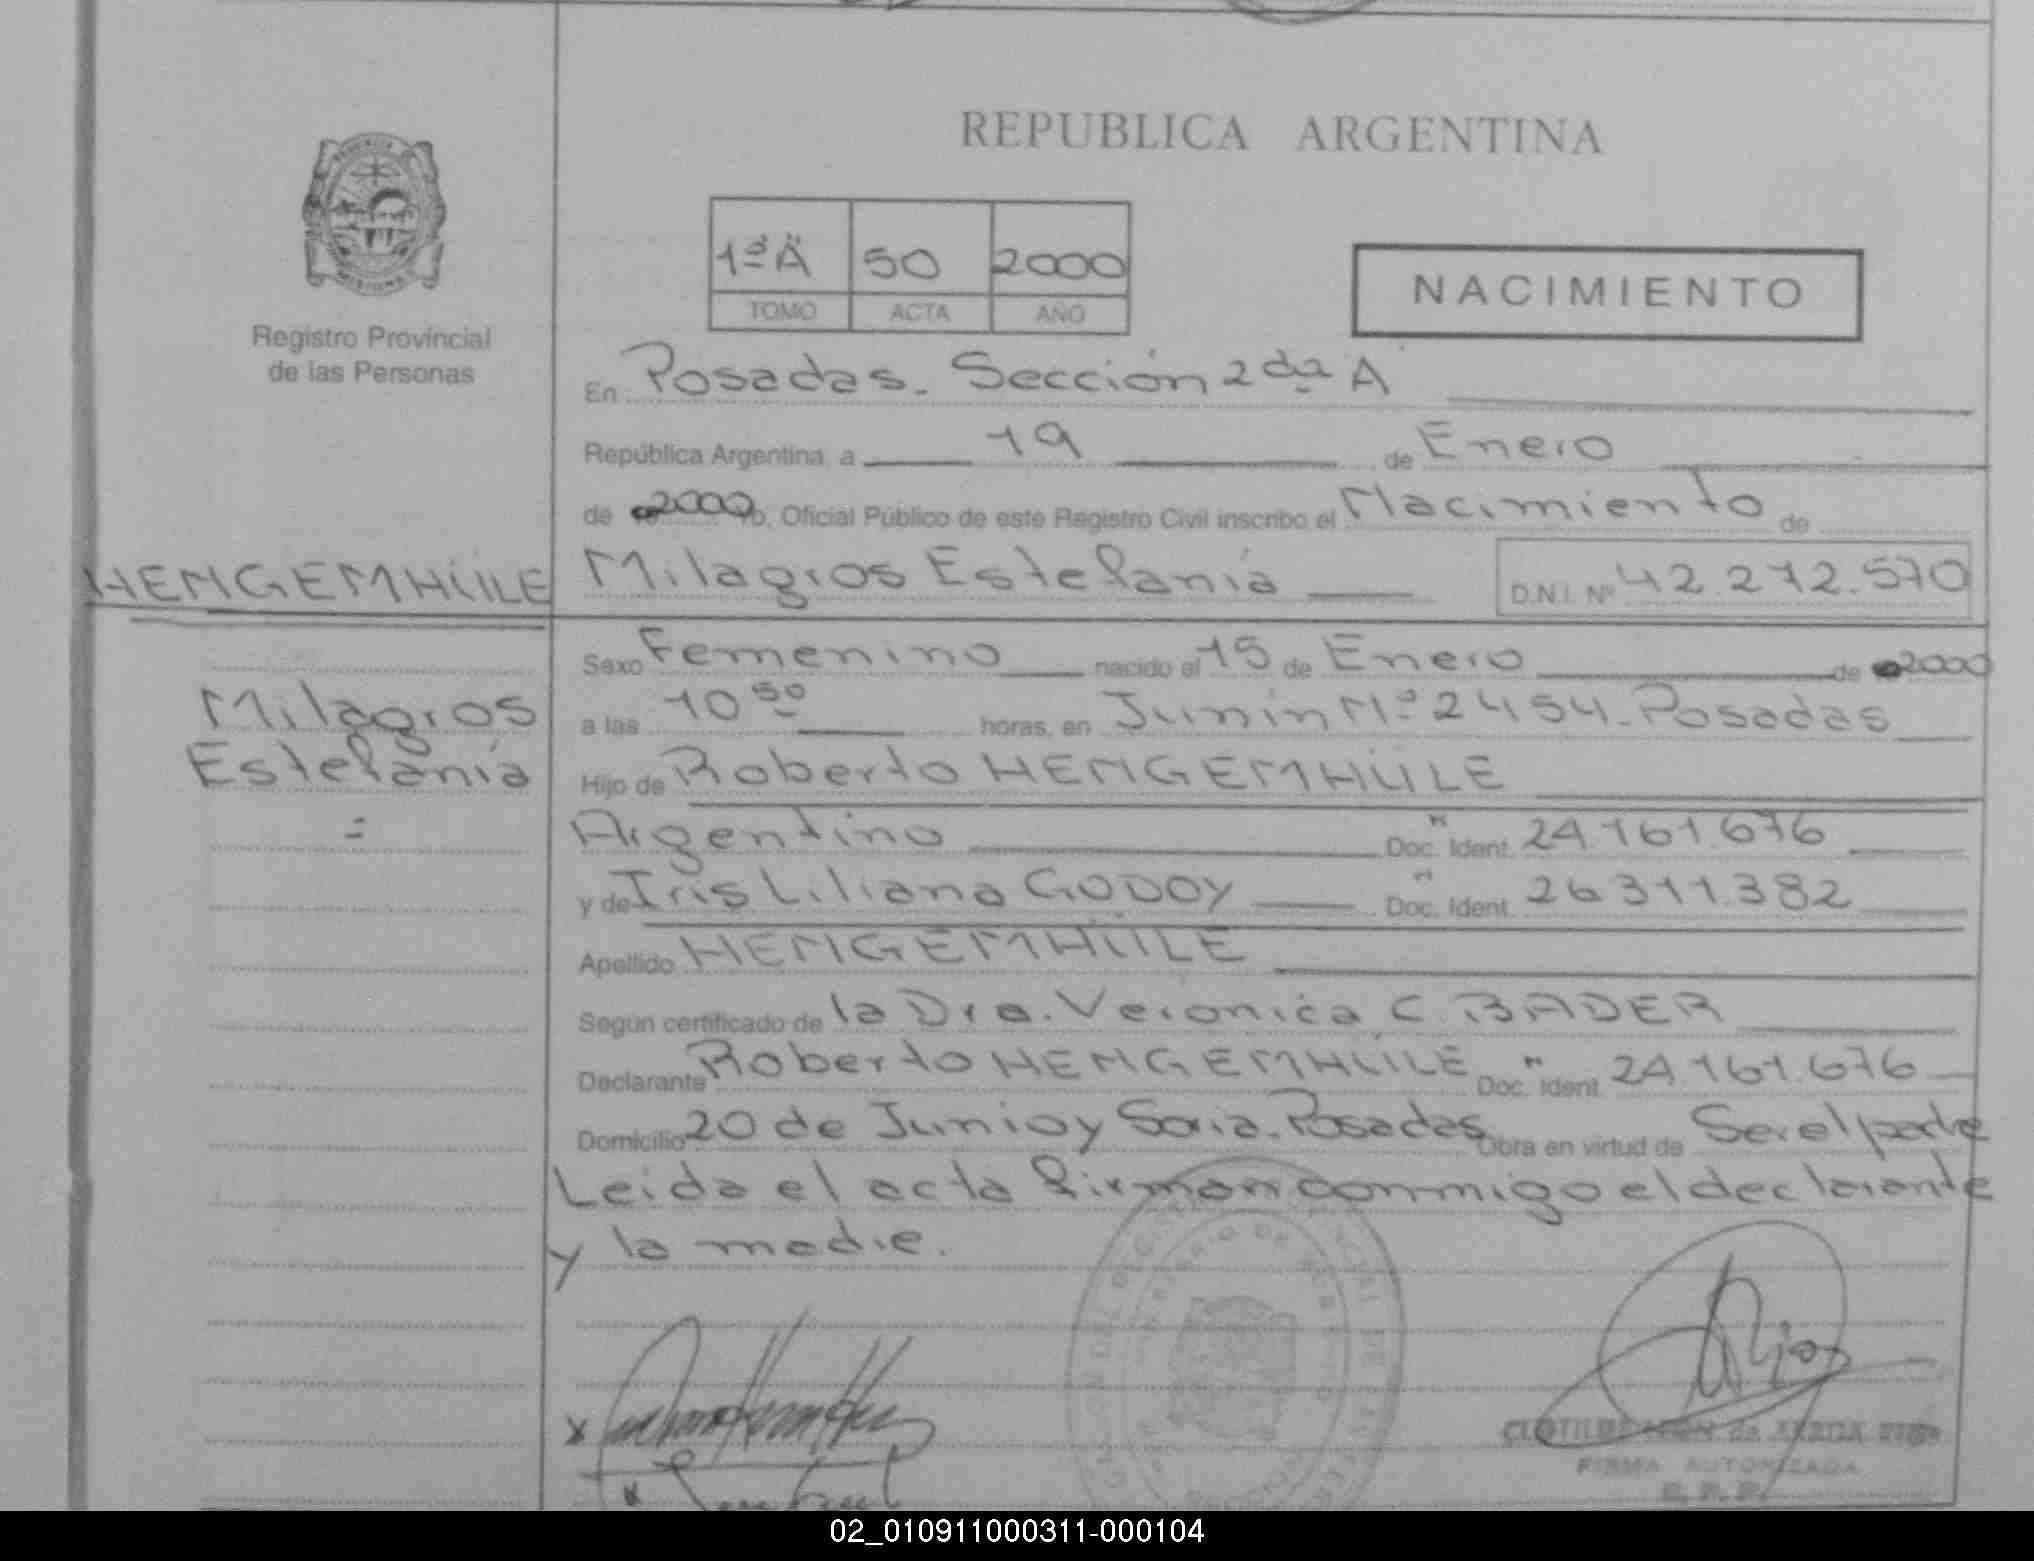 REPUBLICA ARGENTINA
1ª "A" 50 2000
TOMO ACTA AÑO
NACIMIENTO
Registro Provincial
de las Personas
En Posadas. Sección 2da "A"
República Argentina, a 19 de Enero
de 2000 Yo, Oficial Público de este Registro Civil inscribo el Nacimiento de
HENGEMHÜLE
Milagros Estefanía D.N.I. Nº 42.272.570
Sexo Femenino nacido el 15 de Enero de 2000
Milagros
Estefanía
a las 10 50 horas, en Junín Nº 2454. Posadas
Hijo de Roberto HENGEMHÜLE
Argentino Doc. Ident. 24.161.676
y de Iris Liliana GODOY Doc. Ident. 26.311.382
Apellido HENGEMHÜLE
Según certificado de la Dra. Veronica C. BADER
Declarante Roberto HENGEMHÜLE Doc. Ident. 24.161.676
Domicilio 20 de Junio y Soria. Posadas Obra en virtud de Ser el padre
Leida el acta firman conmigo el declarante
y la madre.
FIRMA AUTORIZADA
02_010911000311-000104